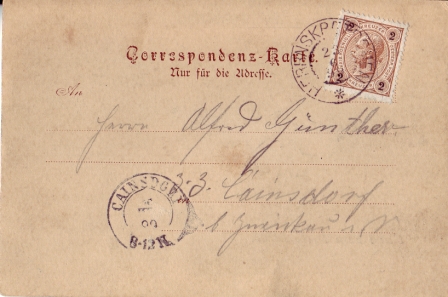 Correspondenz-Karte.
Nur für die Adresse.
An
Herrn Alfred Günther
z. Z. Cainsdorf
b/Zwickau i. S.
CAINSDORF
8-12 V.
HERRNSKR
2
2
2